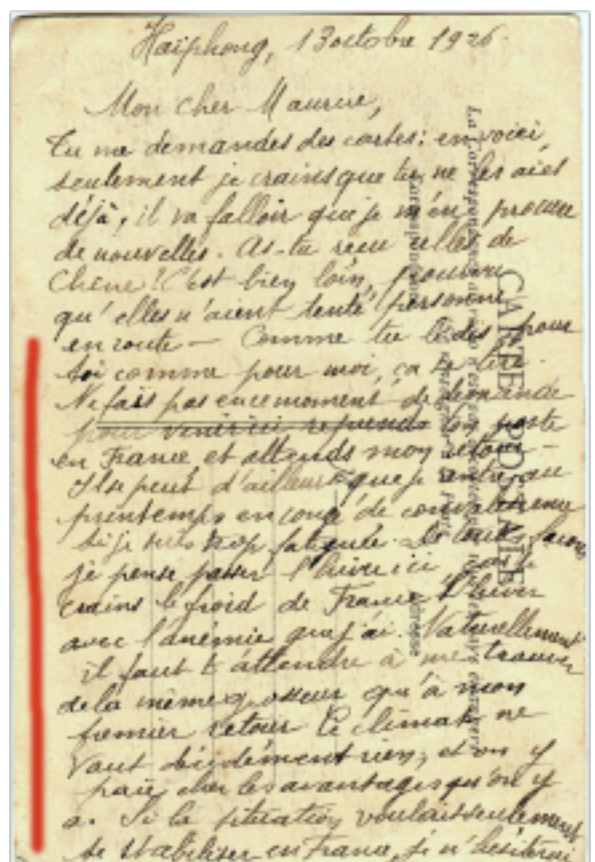 Haïphong, 13 octobre 1926.
Mon cher Maurice,
Tu me demandes des cartes: en voici,
seulement je crains que tu ne les aies
déjà, il va falloir que je m'en procure
de nouvelles. As-tu reçu celles de
Chine? C'est bien loin, pourvu
qu'elles n'aient tenté personne
en route — Comme tu le dis pour
toi comme pour moi, ça se tire.
Ne fais pas en ce moment de demande
pour venir ici reprends ton poste
en France et attends mon retour —
Il se peut d'ailleurs que je rentre au
printemps en congé de convalescence
si je suis trop fatiguée. De toutes façons
je pense passer l'hiver ici, car je
crains le froid de France l'hiver
avec l'anémie que j'ai. Naturellement
il faut t'attendre à me trouver
de la même grosseur qu'à mon
premier retour. Ce climat ne
vaut décidément rien, et on y
paie cher les avantages qu'on y
a. Si la situation voulait seulement
se stabiliser en France, je n'hésiterai
CARTE POSTALE
La Correspondance au
Correspondance
Adresse